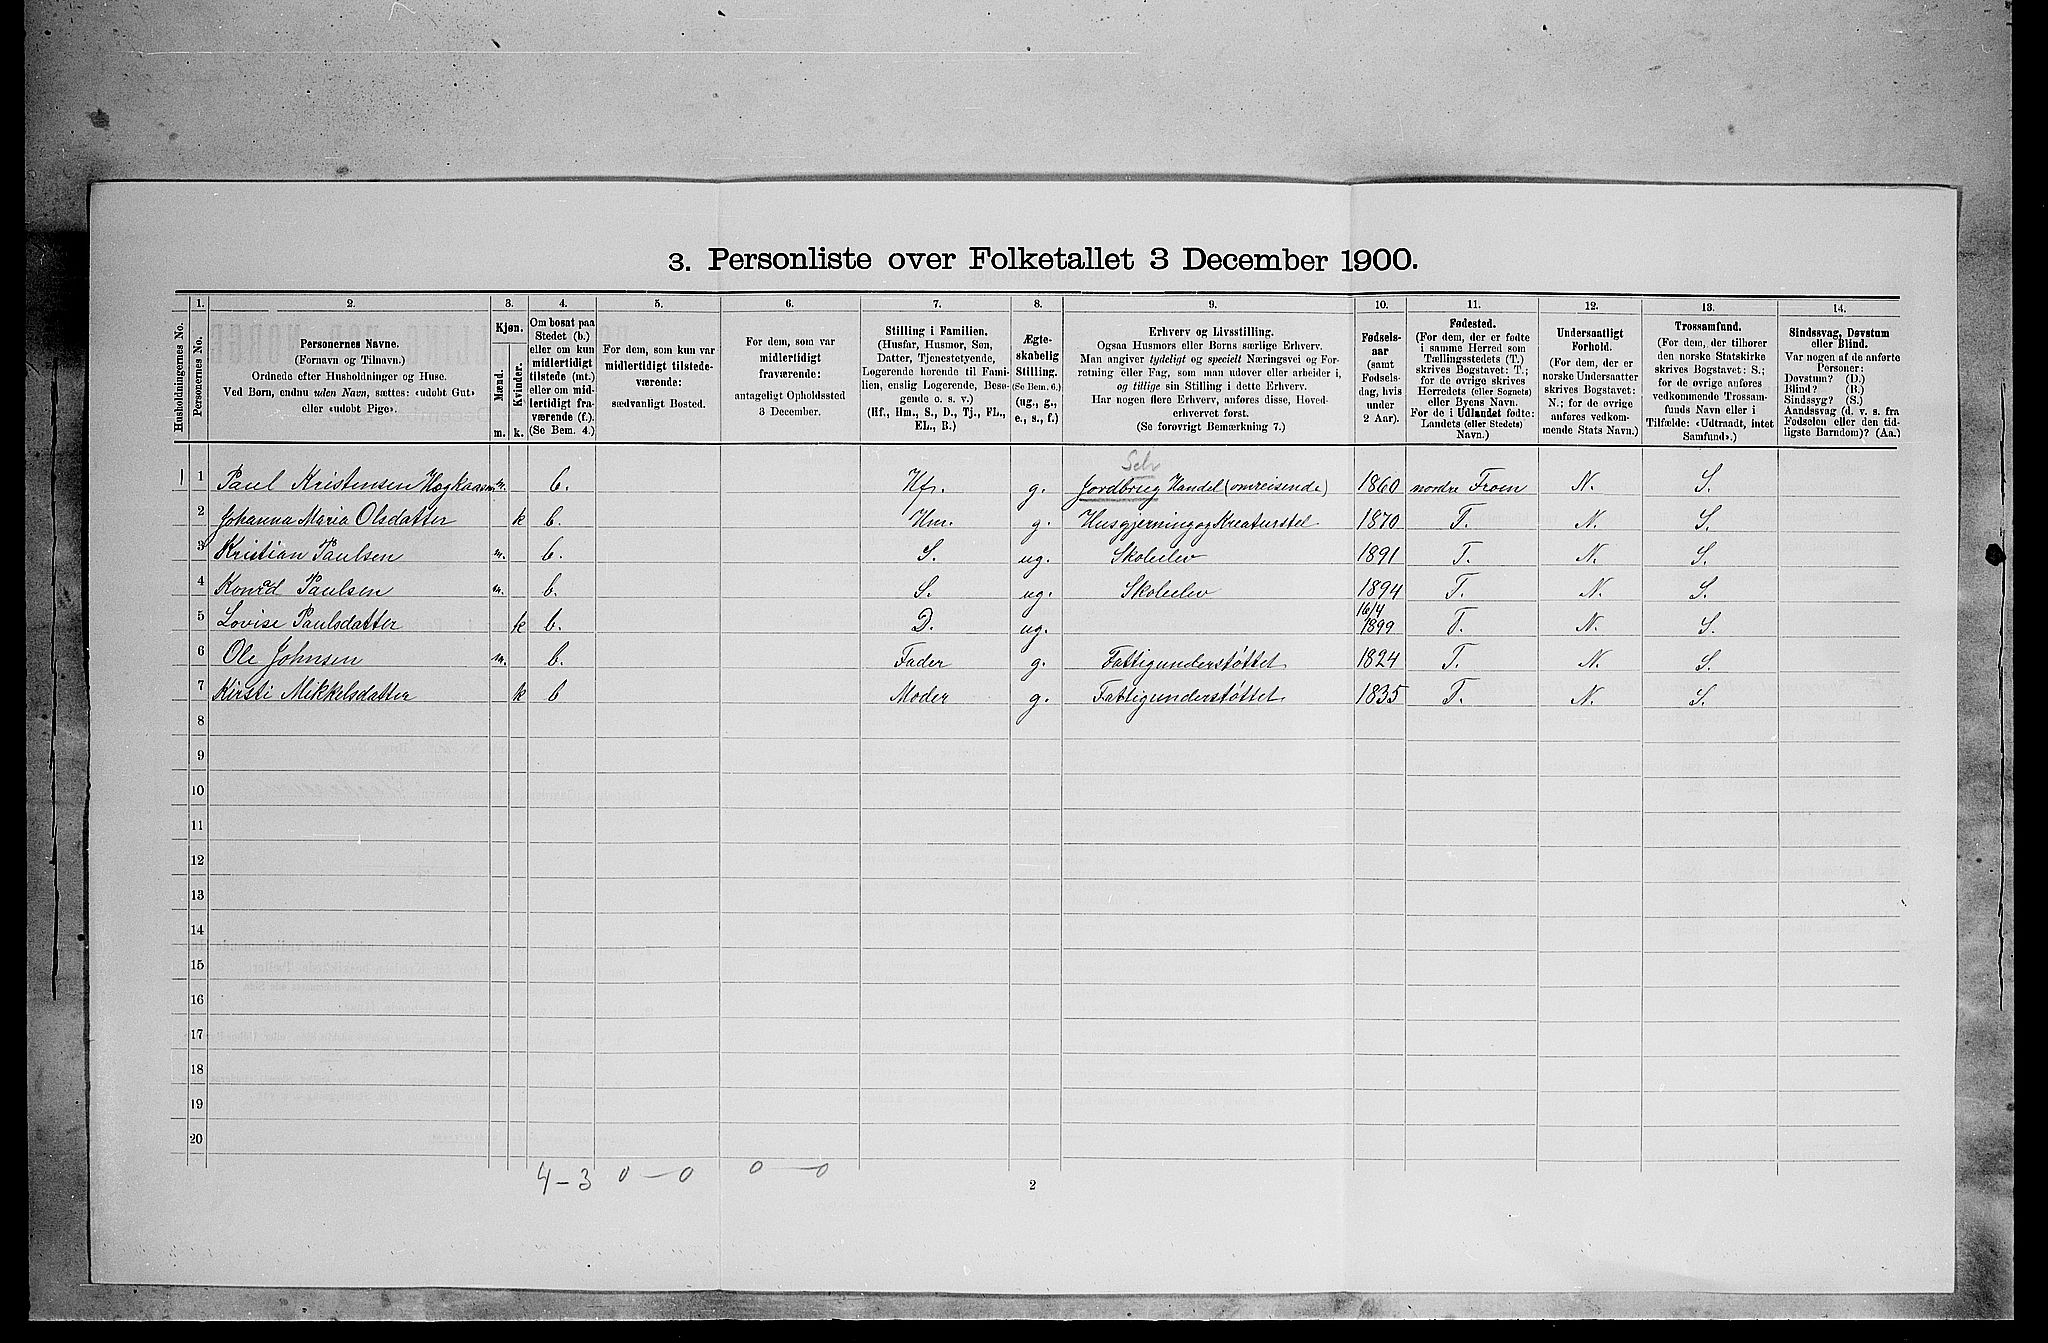 3. Personliste over Folketallet 3 December 1900.
1. 2. 3. 4. 5. 6. 7. 8. 9. 10. 11. 12. 13. 14.
Husholdningernes No.
Personernes No.
Personernes Navne.
(Fornavn og Tilnavn.)
Ordnede efter Husholdninger og Huse.
Ved Børn, endnu uden Navn, sættes: «udøbt Gut»
eller «udøbt Pige».
Kjøn.
Mænd.
Kvinder.
m. k.
Om bosat paa
Stedet (b.)
eller om kun
midlertidigt
tilstede (mt.)
eller om mid-
lertidigt fra-
værende (f.)
(Se Bem. 4.)
For dem, som kun var
midlertidigt tilstede-
værende:
sædvanligt Bosted.
For dem, som var
midlertidigt
fraværende:
antageligt Opholdssted
3 December.
Stilling i Familien.
(Husfar, Husmor, Søn,
Datter, Tjenestetyende,
Logerende hørende til Fami-
lien, enslig Logerende, Besø-
gende o. s. v.)
(Hf., Hm., S., D., Tj., FL.,
EL., B.)
Ægte-
skabelig
Stilling.
(Se Bem. 6.)
(ug., g.,
e., s., f.)
Erhverv og Livsstilling.
Ogsaa Husmors eller Børns særlige Erhverv.
Man angiver tydeligt og specielt Næringsvei og For-
retning eller Fag, som man udøver eller arbeider i,
og tillige sin Stilling i dette Erhverv.
Har nogen flere Erhverv, anføres disse, Hoved-
erhvervet først.
(Se forøvrigt Bemærkning 7.)
Fødsels-
aar
(samt
Fødsels-
dag, hvis
under
2 Aar).
Fødested.
(For dem, der er fødte
i samme Herred som
Tællingsstedets (T.)
skrives Bogstavet: T.;
for de øvrige skrives
Herredets (eller Sognets)
eller Byens Navn.
For de i Udlandet fødte:
Landets (eller Stedets)
Navn.)
Undersaatligt
Forhold.
(For dem, der er
norske Undersaatter
skrives Bogstavet:
N.; for de øvrige
anføres vedkom-
mende Stats Navn.)
Trossamfund.
(For dem, der tilhører
den norske Statskirke
skrives Bogstavet: S.;
for de øvrige anføres
vedkommende Trossam-
funds Navn eller i
Tilfælde: «Udtraadt, intet
Samfund».)
Sindssvag, Døvstum
eller Blind.
Var nogen af de anførte
Personer:
Døvstum? (D.)
Blind? (B.)
Sindssyg? (S.)
Aandssvag (d. v. s. fra
Fødselen eller den tid-
ligste Barndom)? (Aa.)
Selv
1 1 Paul Kristensen m. b. Hf. g. Jordbrug Handel (omreisende) 1860 nordre Froen N. S.
2 Johanna Maria Olsdatter k b. Hm. g. Husgjerning og Kreaturstel 1870 T. N. S.
3 Kristian Paulsen m. b. S. ug. Skoleelev 1891 T. N. S.
4 Konrad Paulsen m. b. S. ug. Skoleelev 1894 T. N. S.
5 Lovise Paulsdatter k b. D. ug. 16/4 1899 T. N. S.
6 Ole Johnsen m. b. Fader g. Fattigunderstøttet 1824 T. N. S.
7 Kirsti Mikkelsdatter k b Moder g. Fattigunderstøttet 1835 T. N. S.
8
9
10
11
12
13
14
15
16
17
18
19
20
4 – 3 0 – 0 0 – 0
2